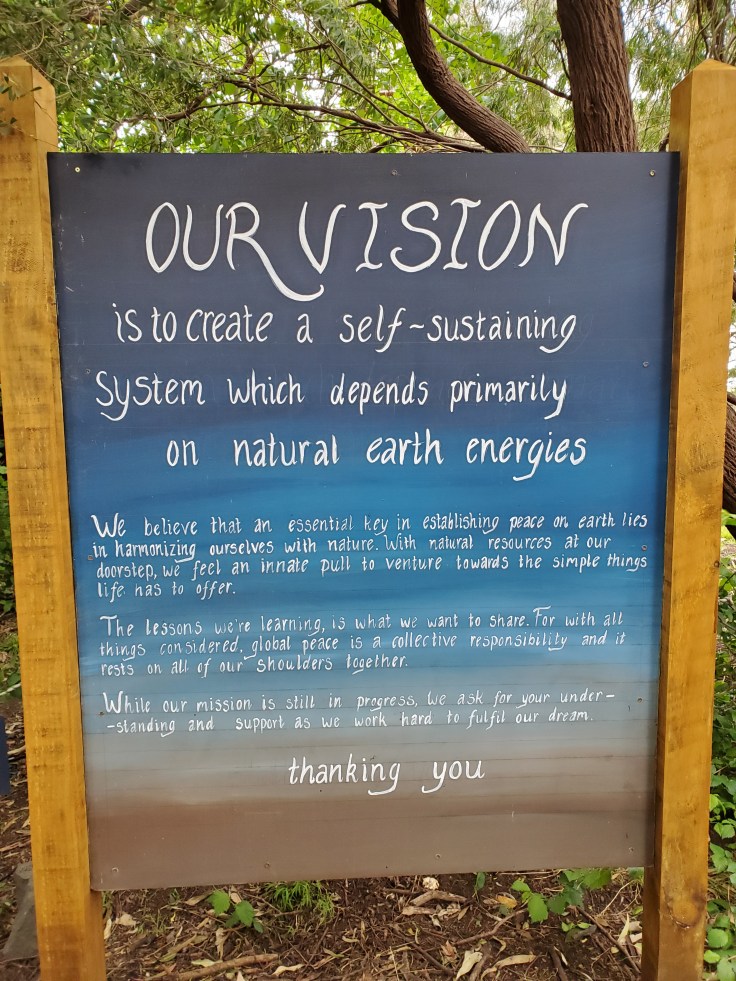 OUR VISION
is to create a self-sustaining
system which depends primarily
on natural earth energies
We believe that an essential key in establishing peace on earth lies
in harmonizing ourselves with nature. With natural resources at our
doorstep, we feel an innate pull to venture towards the simple things
life has to offer.
The lessons we're learning, is what we want to share. For with all
things considered, global peace is a collective responsibility and it
rests on all of our shoulders together.
While our mission is still in progress, we ask for your under-
-standing and support as we work hard to fulfil our dream.
thanking you